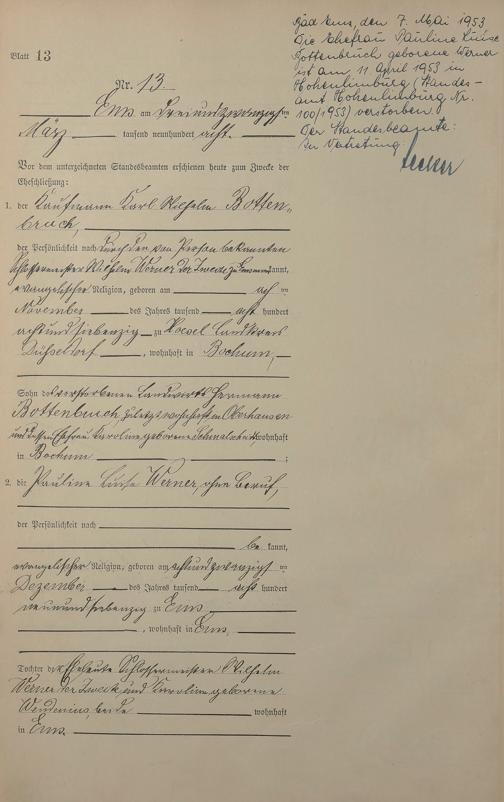 Blatt 13
Bad Ems, den 7. Mai 1953
Die Ehefrau Pauline Luise
Bottenbruch geborene Werner
ist am 11 April 1953 in
Hohenlimburg (Standes-
amt Hohenlimburg Nr.
100/1953) verstorben.
Der Standesbeamte:
In Vertretung
Nr. 13.
Ems am dreiundzwanzigsten
März tausend neunhundert acht.
Vor dem unterzeichneten Standesbeamten erschienen heute zum Zwecke der
Eheschließung:
1. der Kaufmann Karl Wilhelm Botten-
bruch,
der Persönlichkeit nach durch den von Person bekannten
Schlossermeister Wilhelm Werner der Zweite zu kannt,
evangelischer Religion, geboren am ach ten
November des Jahres tausend acht hundert
achtundsiebenzig zu Hoesel Landkreis
Düsseldorf, wohnhaft in Bochum,
Sohn des verstorbenen Landwirts Hermann
Bottenbruch, zuletzt wohnhaft in Oberhausen
und dessen Ehefrau Karoline geborene wohnhaft
in Bochum ;
2. die Pauline Luise Werner, ohne Beruf,
der Persönlichkeit nach
be kannt,
evangelischer Religion, geboren am achtundzwanzigst en
Dezember des Jahres tausend acht hundert
neunundsiebenzig zu Ems
, wohnhaft in Ems,
Tochter der Eheleute Schlossermeister Wilhelm
Werner der Zweite und Karoline geborene
beide wohnhaft
in Ems.